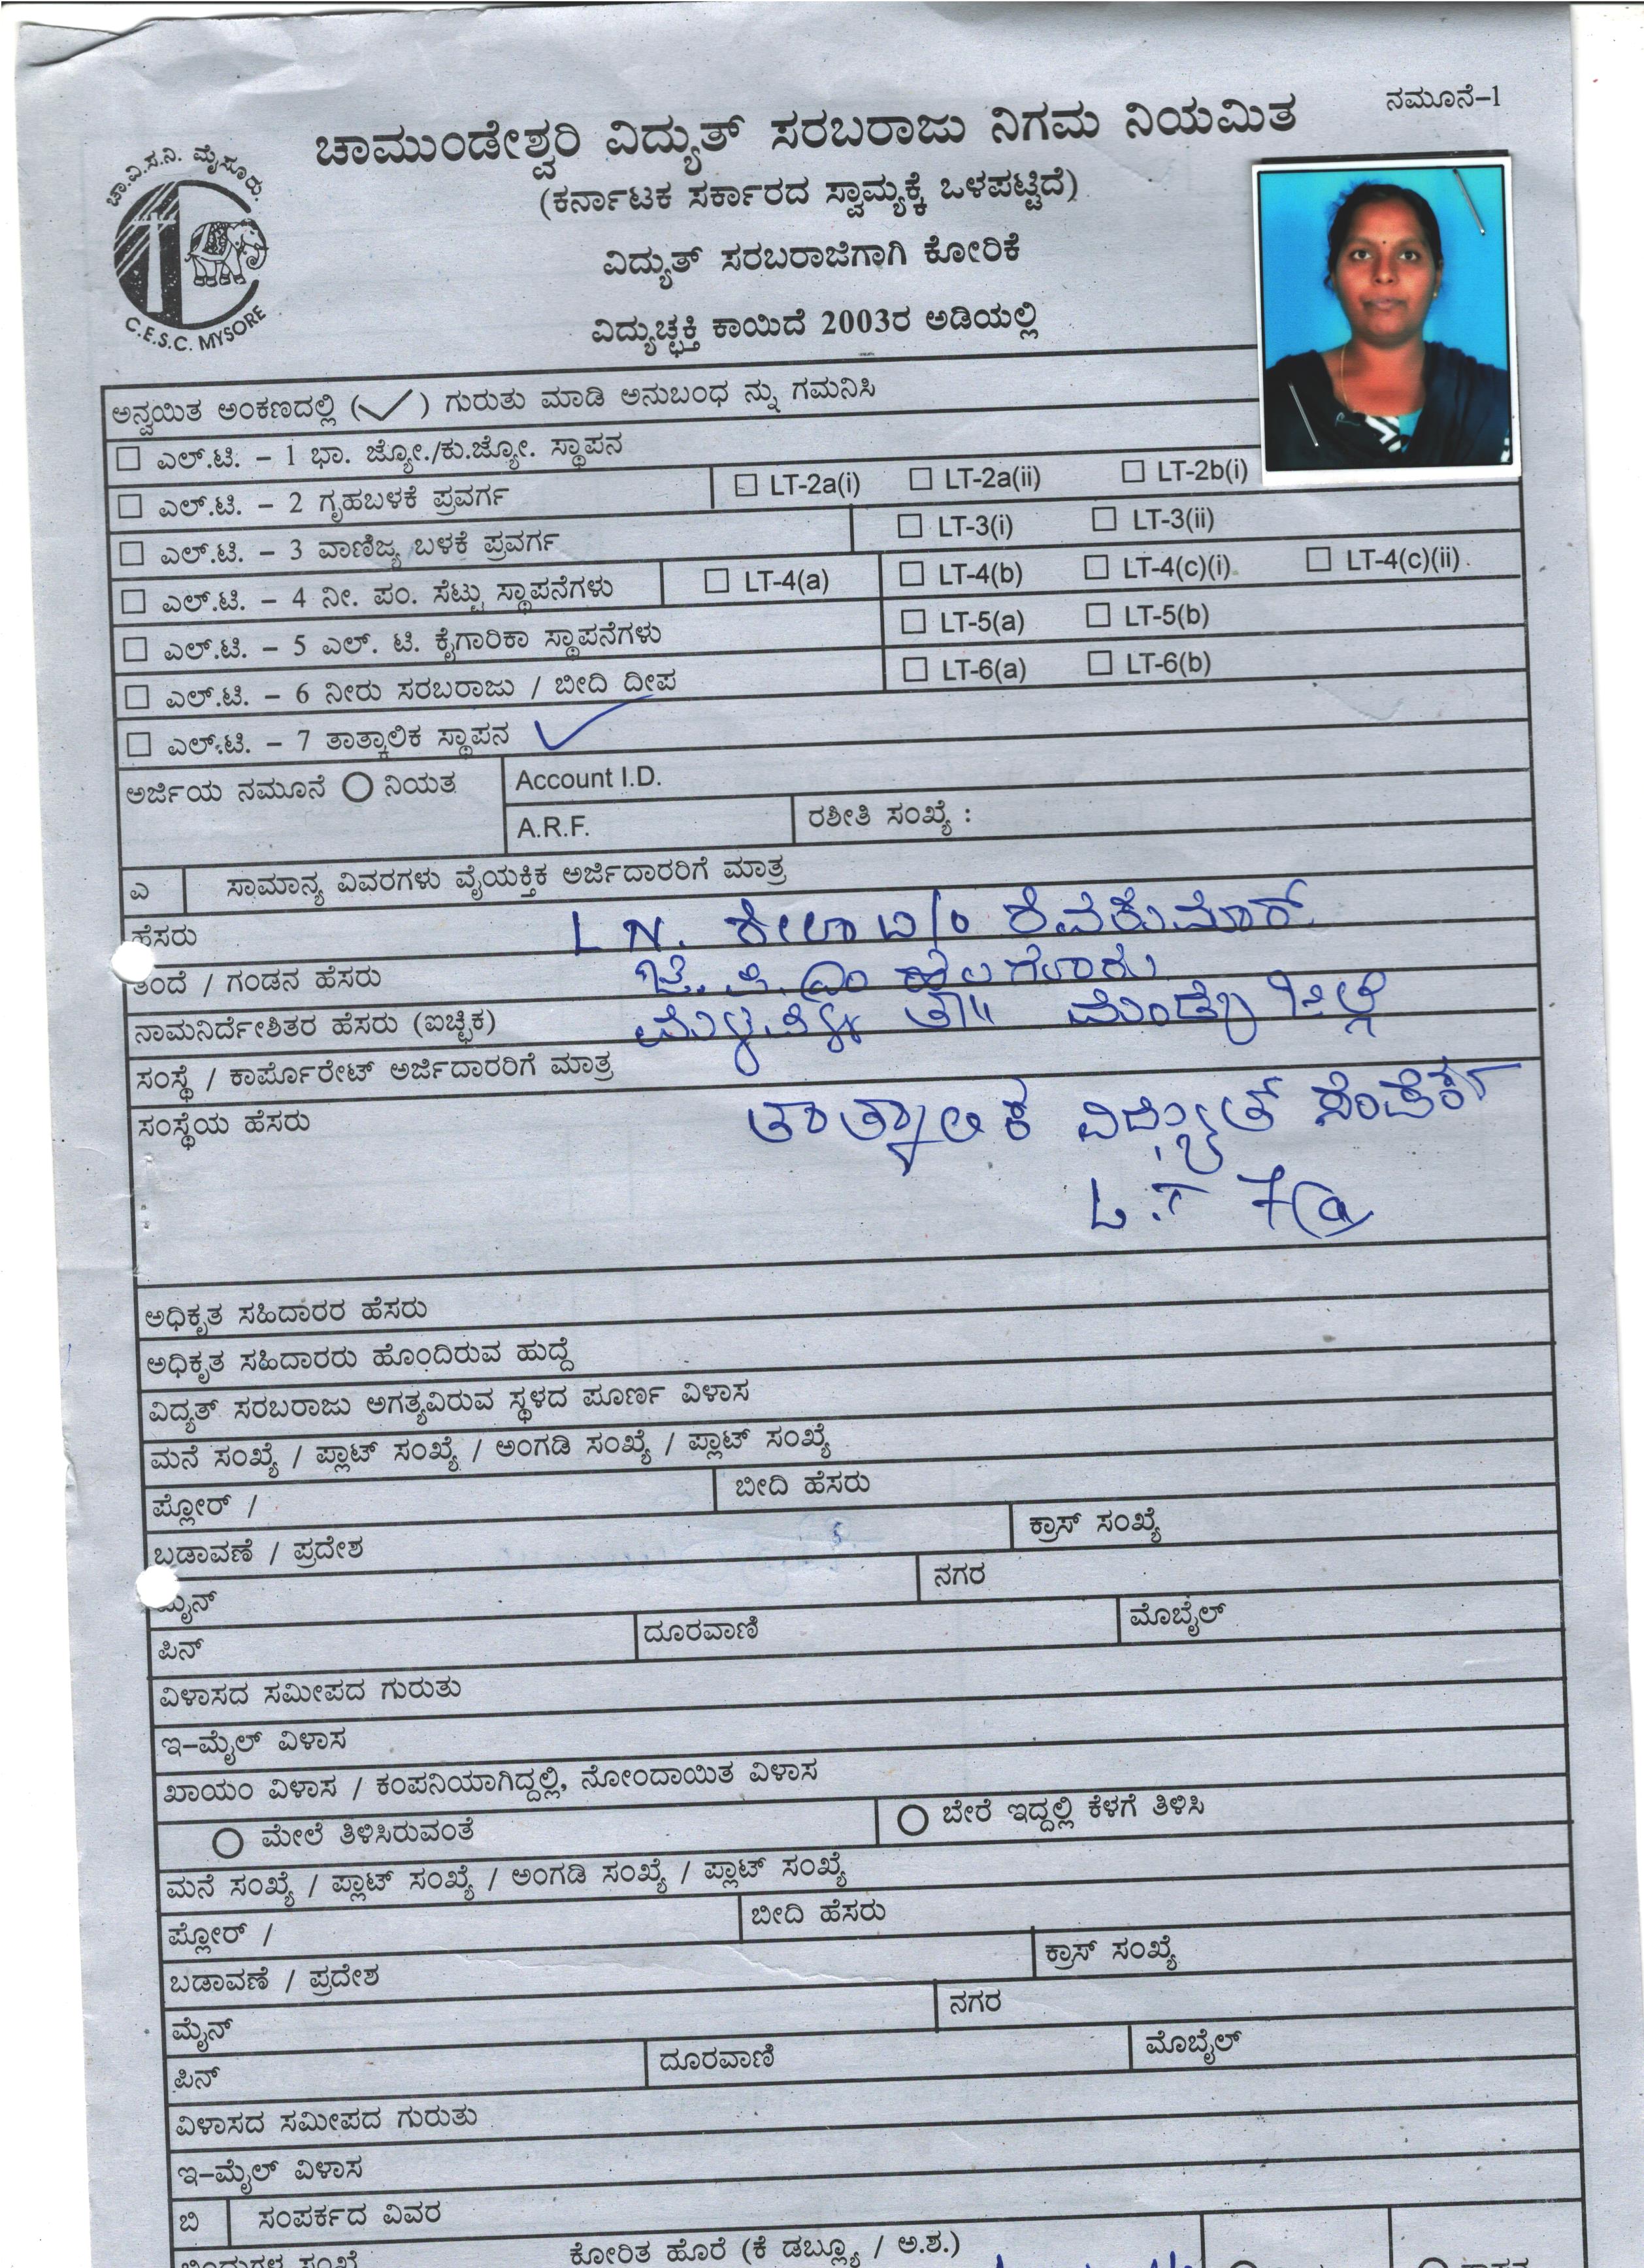 ನಮೂನೆ–1
ಚಾಮುಂಡೇಶ್ವರಿ ವಿದ್ಯುತ್ ಸರಬರಾಜು ನಿಗಮ ನಿಯಮಿತ
(ಕರ್ನಾಟಕ ಸರ್ಕಾರದ ಸ್ವಾಮ್ಯಕ್ಕೆ ಒಳಪಟ್ಟಿದೆ)
ಚಾ.ವಿ.ಸ.ನಿ. ಮೈಸೂರು.
C.E.S.C. MYSORE
ವಿದ್ಯುತ್ ಸರಬರಾಜಿಗಾಗಿ ಕೋರಿಕೆ
ವಿದ್ಯುಚ್ಛಕ್ತಿ ಕಾಯಿದೆ 2003ರ ಅಡಿಯಲ್ಲಿ
ಅನ್ವಯಿತ ಅಂಕಣದಲ್ಲಿ (✓) ಗುರುತು ಮಾಡಿ ಅನುಬಂಧ ನ್ನು ಗಮನಿಸಿ
ಎಲ್.ಟಿ. – 1 ಭಾ. ಜ್ಯೋ./ಕು.ಜ್ಯೋ. ಸ್ಥಾಪನ
ಎಲ್.ಟಿ. – 2 ಗೃಹಬಳಕೆ ಪ್ರವರ್ಗ LT-2a(i) LT-2a(ii) LT-2b(i)
ಎಲ್.ಟಿ. – 3 ವಾಣಿಜ್ಯ ಬಳಕೆ ಪ್ರವರ್ಗ LT-3(i) LT-3(ii)
ಎಲ್.ಟಿ. – 4 ನೀ. ಪಂ. ಸೆಟ್ಟು ಸ್ಥಾಪನೆಗಳು LT-4(a) LT-4(b) LT-4(c)(i). LT-4(c)(ii).
ಎಲ್.ಟಿ. – 5 ಎಲ್. ಟಿ. ಕೈಗಾರಿಕಾ ಸ್ಥಾಪನೆಗಳು LT-5(a) LT-5(b)
ಎಲ್.ಟಿ. – 6 ನೀರು ಸರಬರಾಜು / ಬೀದಿ ದೀಪ LT-6(a) LT-6(b)
ಎಲ್.ಟಿ. – 7 ತಾತ್ಕಾಲಿಕ ಸ್ಥಾಪನ ✓
ಅರ್ಜಿಯ ನಮೂನೆ ನಿಯತ Account I.D.
A.R.F. ರಶೀತಿ ಸಂಖ್ಯೆ :
ಎ ಸಾಮಾನ್ಯ ವಿವರಗಳು ವೈಯಕ್ತಿಕ ಅರ್ಜಿದಾರರಿಗೆ ಮಾತ್ರ
ಹೆಸರು L N. ಶೀಲಾ W/o ಶಿವಕುಮಾರ್
ತಂದೆ / ಗಂಡನ ಹೆಸರು
ನಾಮನಿರ್ದೇಶಿತರ ಹೆಸರು (ಐಚ್ಛಿಕ) ಮಳವಳ್ಳಿ ತಾ॥ ಮಂಡ್ಯ ಜಿಲ್ಲೆ
ಸಂಸ್ಥೆ / ಕಾರ್ಪೊರೇಟ್ ಅರ್ಜಿದಾರರಿಗೆ ಮಾತ್ರ
ಸಂಸ್ಥೆಯ ಹೆಸರು ತಾತ್ಕಾಲಿಕ ವಿದ್ಯುತ್ ಸಂಪರ್ಕ
L.T 7(a)
ಅಧಿಕೃತ ಸಹಿದಾರರ ಹೆಸರು
ಅಧಿಕೃತ ಸಹಿದಾರರು ಹೊಂದಿರುವ ಹುದ್ದೆ
ವಿದ್ಯತ್ ಸರಬರಾಜು ಅಗತ್ಯವಿರುವ ಸ್ಥಳದ ಪೂರ್ಣ ವಿಳಾಸ
ಮನೆ ಸಂಖ್ಯೆ / ಪ್ಲಾಟ್ ಸಂಖ್ಯೆ / ಅಂಗಡಿ ಸಂಖ್ಯೆ / ಪ್ಲಾಟ್ ಸಂಖ್ಯೆ
ಪ್ಲೋರ್ / ಬೀದಿ ಹೆಸರು
ಬಡಾವಣೆ / ಪ್ರದೇಶ ಕ್ರಾಸ್ ಸಂಖ್ಯೆ
ಮೈನ್ ನಗರ
ಪಿನ್ ದೂರವಾಣಿ ಮೊಬೈಲ್
ವಿಳಾಸದ ಸಮೀಪದ ಗುರುತು
ಇ–ಮೈಲ್ ವಿಳಾಸ
ಖಾಯಂ ವಿಳಾಸ / ಕಂಪನಿಯಾಗಿದ್ದಲ್ಲಿ, ನೋಂದಾಯಿತ ವಿಳಾಸ
ಮೇಲೆ ತಿಳಿಸಿರುವಂತೆ ಬೇರೆ ಇದ್ದಲ್ಲಿ ಕೆಳಗೆ ತಿಳಿಸಿ
ಮನೆ ಸಂಖ್ಯೆ / ಪ್ಲಾಟ್ ಸಂಖ್ಯೆ / ಅಂಗಡಿ ಸಂಖ್ಯೆ / ಪ್ಲಾಟ್ ಸಂಖ್ಯೆ
ಪ್ಲೋರ್ / ಬೀದಿ ಹೆಸರು
ಬಡಾವಣೆ / ಪ್ರದೇಶ ಕ್ರಾಸ್ ಸಂಖ್ಯೆ
ಮೈನ್ ನಗರ
ಪಿನ್ ದೂರವಾಣಿ ಮೊಬೈಲ್
ವಿಳಾಸದ ಸಮೀಪದ ಗುರುತು
ಇ–ಮೈಲ್ ವಿಳಾಸ
ಬಿ ಸಂಪರ್ಕದ ವಿವರ
ಕೋರಿತ ಹೊರೆ (ಕೆ ಡಬ್ಲ್ಯೂ / ಅ.ಶ.)